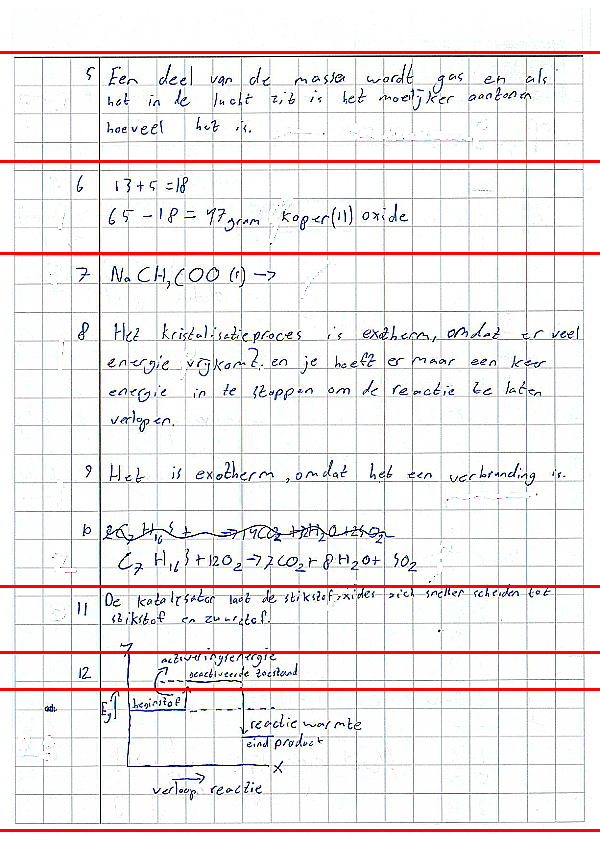 5 Een deel van de massa wordt gas en als
het in de lucht zit is het moeilijker aantonen
hoeveel het is.
6 13+5=18
65-18=47gram koper(II) oxide
7 NaCH3COO (l) →
8 Het kristalisatieproces is exotherm, omdat er veel
energie vrijkomt. en je hoeft er maar een keer
energie in te stoppen om de reactie te laten
verlopen.
9 Het is exotherm, omdat het een verbranding is.
10
C7H16S+12O2→7CO2+8H2O+SO2
11 De katalysator laat de stikstofoxides zich sneller scheiden tot
stikstof en zuurstof.
12 activeringsenergie
geactiveerde toestand
Eg beginstof
reactie warmte
eind product
X
verloop reactie